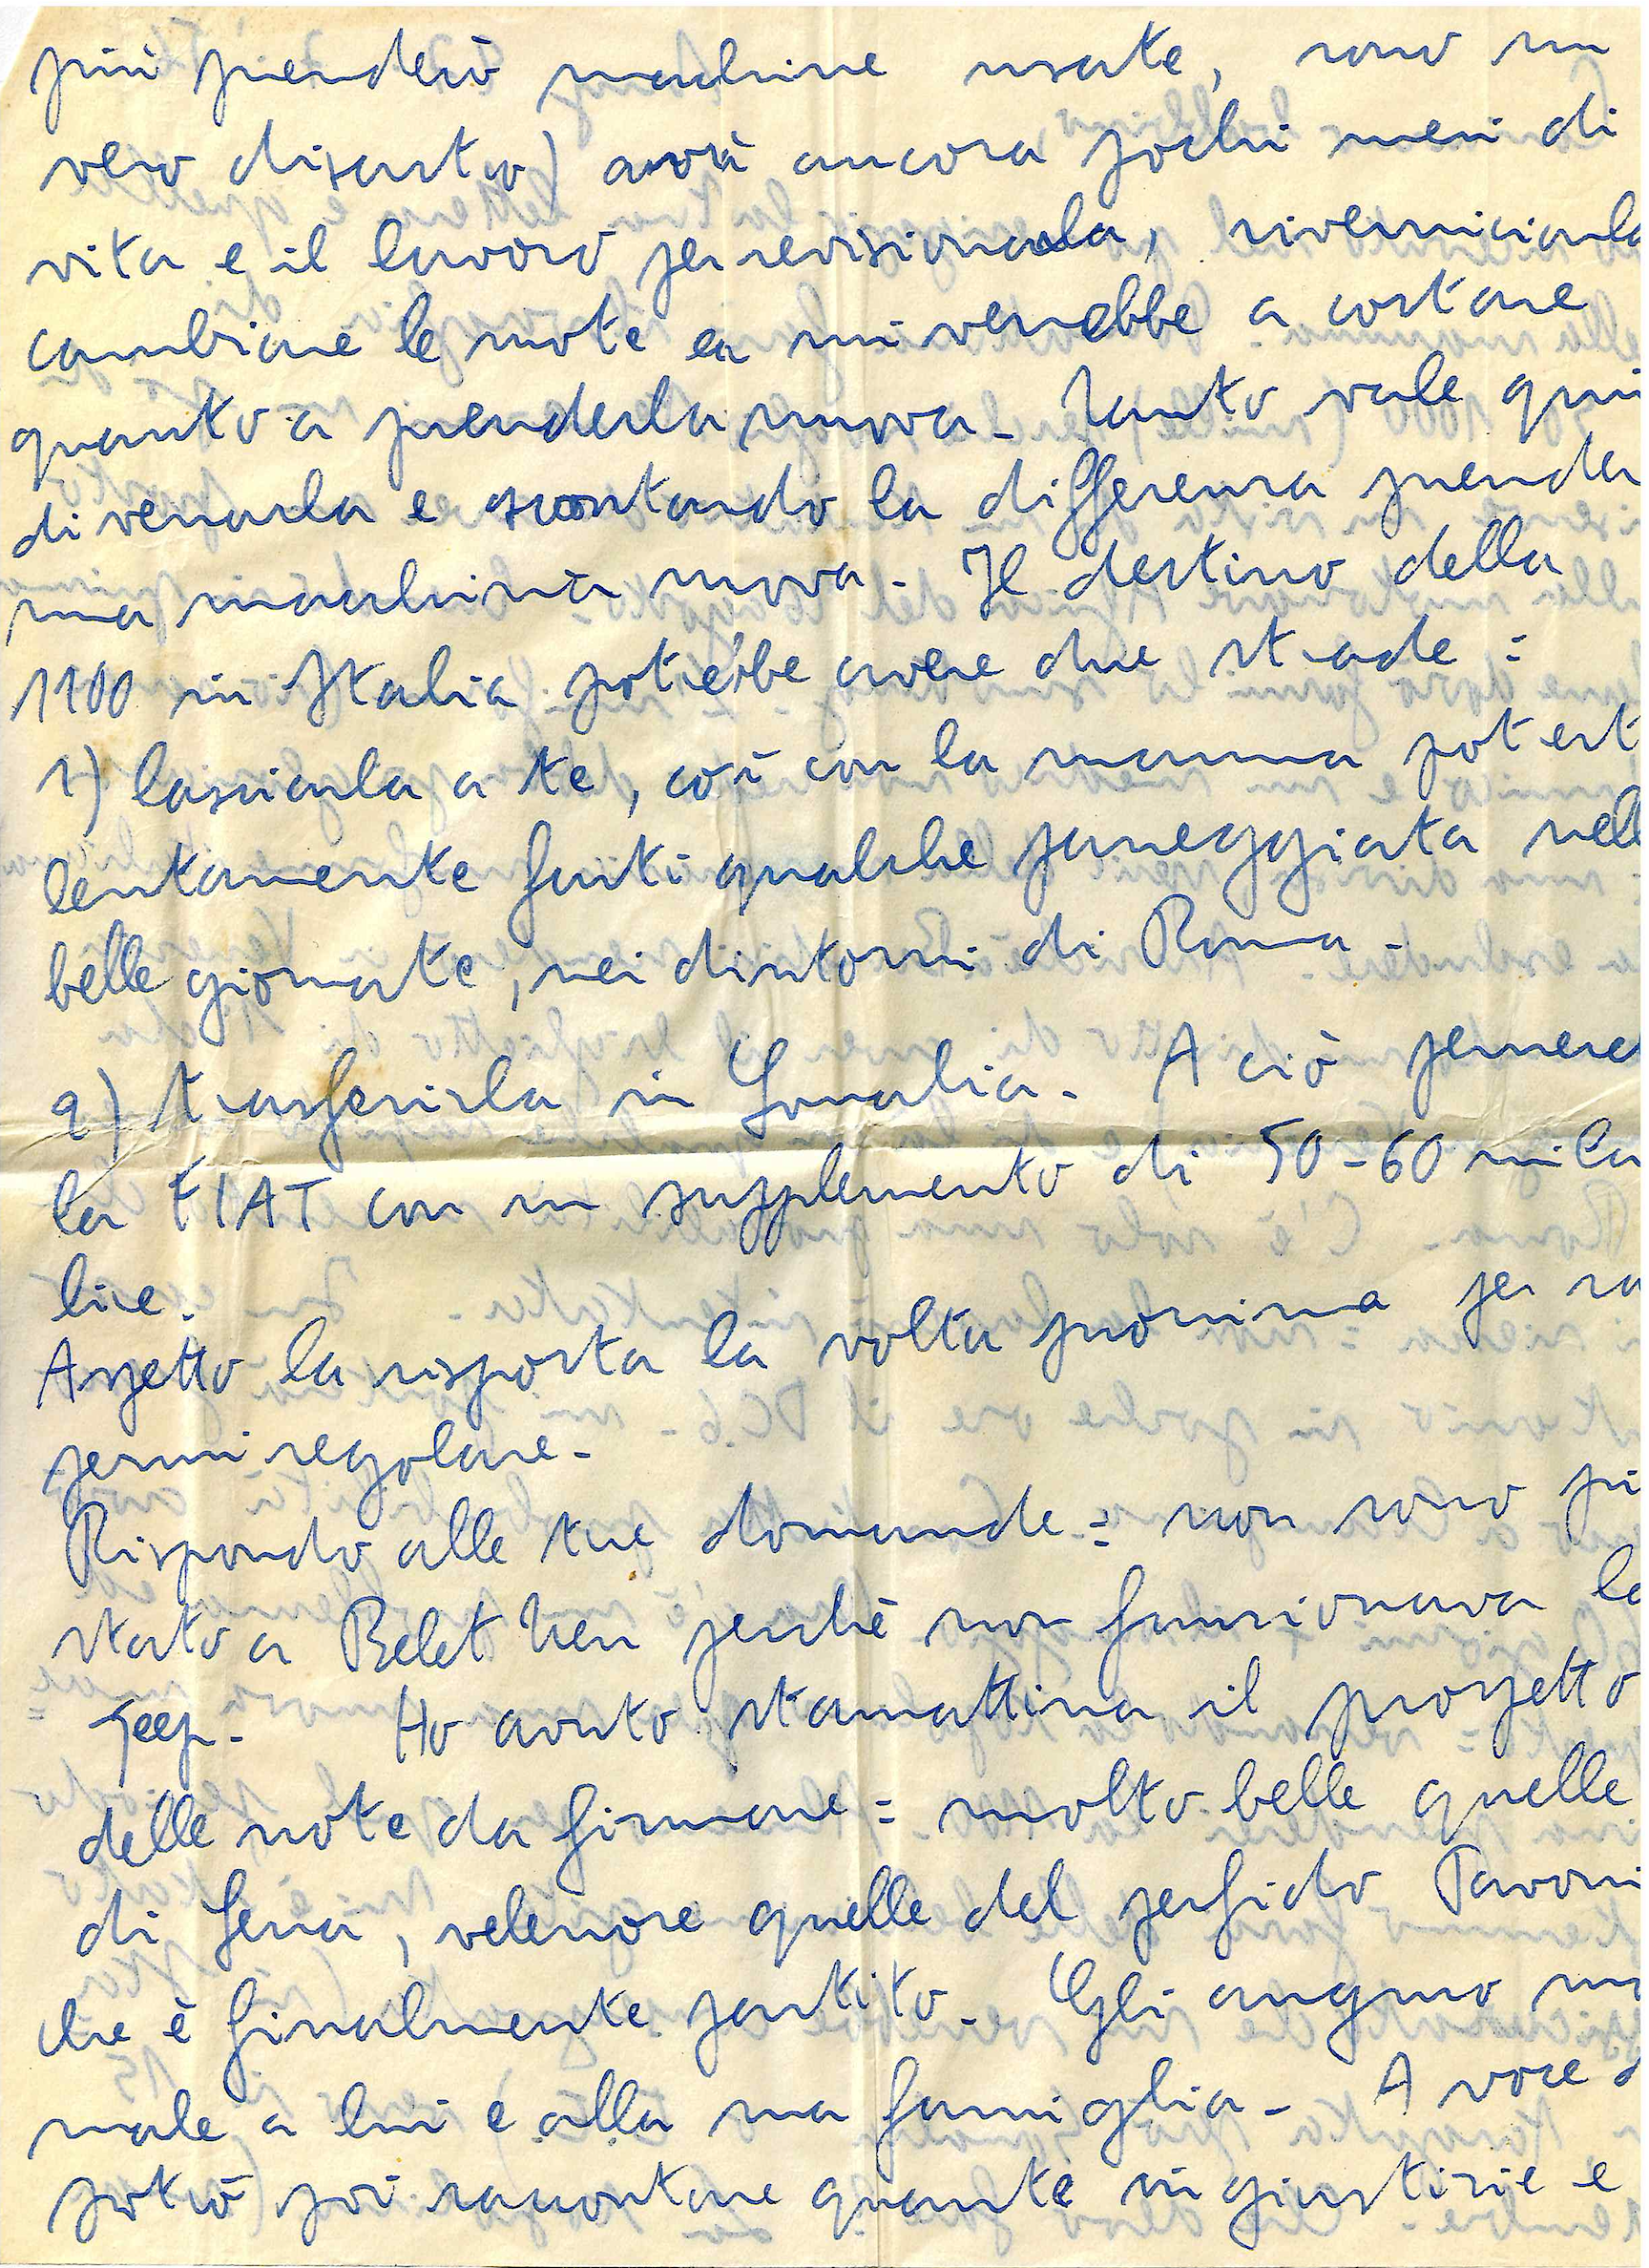 più prenderò macchine usate, sono un
vero disastro) avrà ancora pochi mesi di
vita e il lavoro per revisionarla, riverniciarla
cambiare le ruote ecc mi verrebbe a costare
quanto a prenderla nuova. Tanto vale quin
di versarla e scontando la differenza prender
una macchina nuova. Il destino della
1100 in Italia potrebbe avere due strade:
1) lasciarla a te, così con la mamma potest
lentamente farti qualche passeggiata nell
belle giornate, nei dintorni di Roma.
2) trasferirla in Somalia. A ciò penserà
la FIAT con un supplemento di 50-60 mila
lire.
Aspetto la risposta la volta prossima per sa
permi regolare.
Rispondo alle tue domande: non sono più
stato a Belet Uen perchè non funzionava la
Jeep. Ho avuto stamattina il progetto
delle note da firmare: molto belle quelle
di Sena, velenose quelle del perfido Pavoni
che è finalmente partito. Gli auguro
male a lui e alla sua famiglia. A voce
potrò poi raccontare quante ingiustizie e